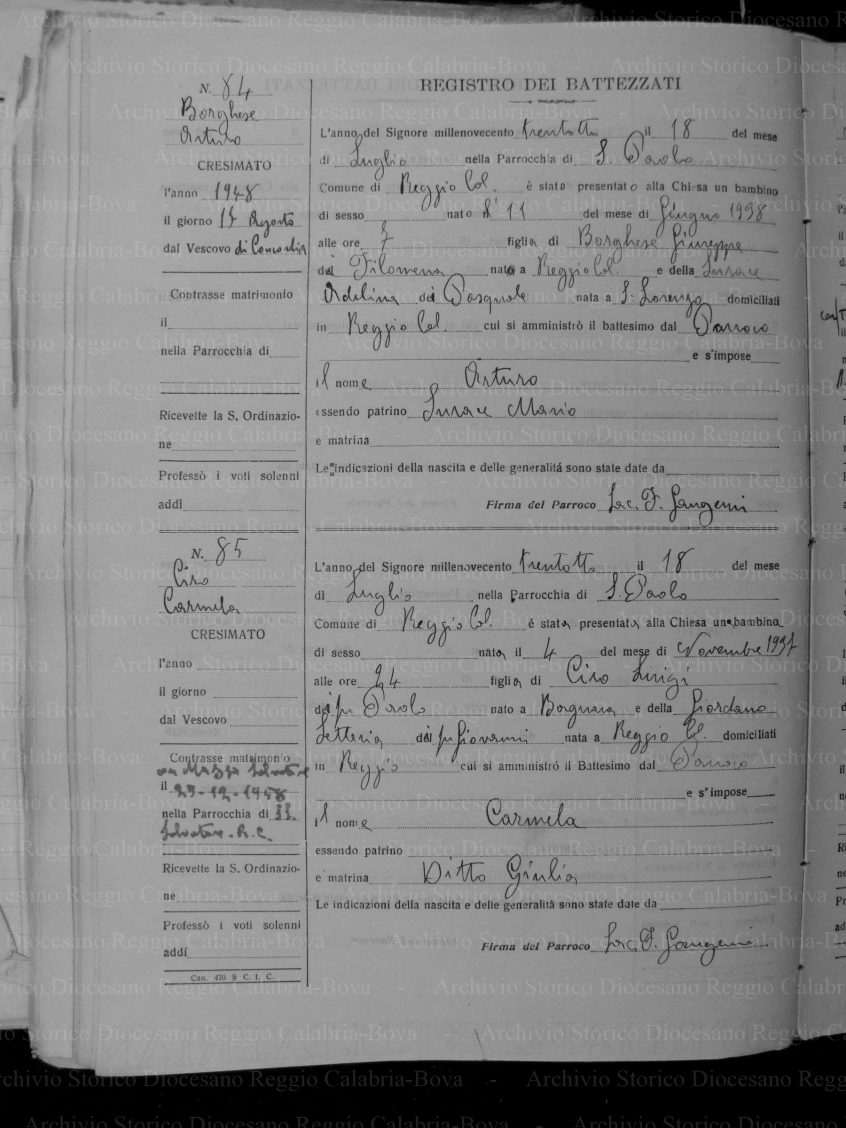 REGISTRO DEI BATTEZZATI
N. 84
Borghese
Arturo
CRESIMATO
l'anno 1948
il giorno 15 Agosto
dal Vescovo di
Contrasse matrimonio
il
nella Parrocchia di
Ricevette la S. Ordinazio-
ne
Professò i voti solenni
addì
L'anno del Signore millenovecento trentotto il 18 del mese
di Luglio nella Parrocchia di S. Paolo
Comune di Reggio Cal. è stato presentato alla Chiesa un bambino
di sesso nato l' 11 del mese di Giugno 1938
alle ore 7 figlio di Borghese Giuseppe
di Filomena nato a Reggio Cal. e della Surace
Adelina di Pasquale nata a S. Lorenzo domiciliati
in Reggio Cal. cui si amministrò il battesimo dal Parroco
e s'impose
il nome Arturo
essendo patrino Surace Mario
e matrina
Le indicazioni della nascita e delle generalitá sono state date da
Firma del Parroco Sac. F. Gangemi
N. 85
Ciro
Carmela
CRESIMATO
l'anno
il giorno
dal Vescovo
Contrasse matrimonio
con Salvatore
il 29-12-1958
nella Parrocchia di SS.
Salvatore - R.C.
Ricevette la S. Ordinazio-
ne
Professò i voti solenni
addí
Can. 470 § C. I. C.
L'anno del Signore millenovecento trentotto il 18 del mese
di Luglio nella Parrocchia di S. Paolo
Comune di Reggio Cal. é stata presentata alla Chiesa una bambina
di sesso nata il 4 del mese di Novembre 1937
alle ore 24 figlia di Ciro Luigi
di fu Paolo nato a Bagnara e della Giordano
Letteria di fu Giovanni nata a Reggio Cal. domiciliati
in Reggio cui si amministró il Battesimo dal Parroco
e s'impose
il nome Carmela
essendo patrino
e matrina Ditto Giulia
Le indicazioni della nascita e delle generalitá sono state date da
Firma del Parroco Sac. F. Gangemi
Archivio Storico Diocesano Reggio Calabria-Bova